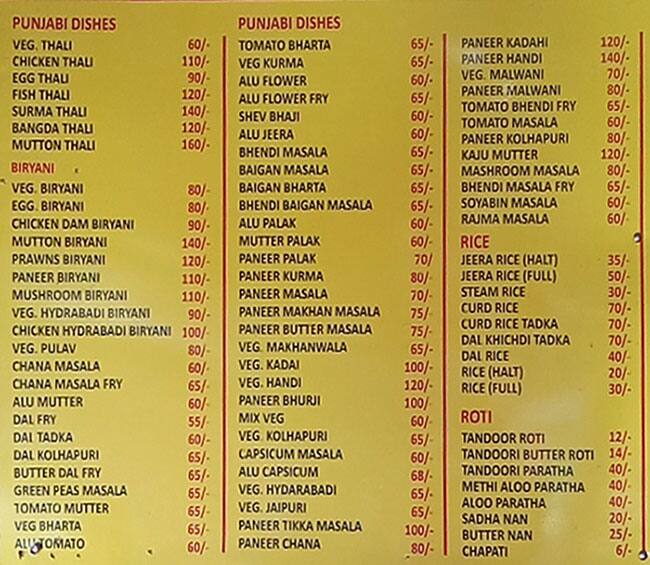 PUNJABI DISHES
VEG. THALI 60/-
CHICKEN THALI 110/-
EGG THALI 90/-
FISH THALI 120/-
SURMA THALI 140/-
BANGDA THALI 120/-
MUTTON THALI 160/-
BIRYANI
VEG. BIRYANI 80/-
EGG. BIRYANI 80/-
CHICKEN DAM BIRYANI 90/-
MUTTON BIRYANI 140/-
PRAWNS BIRYANI 120/-
PANEER BIRYANI 110/-
MUSHROOM BIRYANI 110/-
VEG. HYDRABADI BIRYANI 90/-
CHICKEN HYDRABADI BIRYANI 100/-
VEG. PULAV 80/-
CHANA MASALA 60/-
CHANA MASALA FRY 65/-
ALU MUTTER 60/-
DAL FRY 55/-
DAL TADKA 60/-
DAL KOLHAPURI 60/-
BUTTER DAL FRY 65/-
GREEN PEAS MASALA 65/-
TOMATO MUTTER 65/-
VEG BHARTA 65/-
ALU TOMATO 60/-
PUNJABI DISHES
TOMATO BHARTA 65/-
VEG KURMA 65/-
ALU FLOWER 60/-
ALU FLOWER FRY 65/-
SHEV BHAJI 60/-
ALU JEERA 60/-
BHENDI MASALA 65/-
BAIGAN MASALA 65/-
BAIGAN BHARTA 65/-
BHENDI BAIGAN MASALA 65/-
ALU PALAK 60/-
MUTTER PALAK 60/-
PANEER PALAK 70/
PANEER KURMA 80/-
PANEER MASALA 70/-
PANEER MAKHAN MASALA 75/-
PANEER BUTTER MASALA 75/-
VEG. MAKHANWALA 65/-
VEG. KADAI 100/-
VEG. HANDI 120/-
PANEER BHURJI 100/-
MIX VEG 60/-
VEG. KOLHAPURI 65/-
CAPSICUM MASALA 60/-
ALU CAPSICUM 68/-
VEG. HYDARABADI 65/-
VEG. JAIPURI 65/-
PANEER TIKKA MASALA 100/-
PANEER CHANA 80/-
PANEER KADAHI 120/-
PANEER HANDI 140/-
VEG. MALWANI 70/-
PANEER MALWANI 80/-
TOMATO BHENDI FRY 65/-
TOMATO MASALA 60/-
PANEER KOLHAPURI 80/-
KAJU MUTTER 120/-
MASHROOM MASALA 80/-
BHENDI MASALA FRY 65/-
SOYABIN MASALA 60/-
RAJMA MASALA 60/-
RICE
JEERA RICE (HALT) 35/-
JEERA RICE (FULL) 50/-
STEAM RICE 30/-
CURD RICE 70/-
CURD RICE TADKA 70/-
DAL KHICHDI TADKA 70/-
DAL RICE 40/-
RICE (HALT) 20/-
RICE (FULL) 30/-
ROTI
TANDOOR ROTI 12/-
TANDOORI BUTTER ROTI 14/-
TANDOORI PARATHA 40/-
METHI ALOO PARATHA 40/-
ALOO PARATHA 40/-
SADHA NAN 20/-
BUTTER NAN 25/-
CHAPATI 6/-